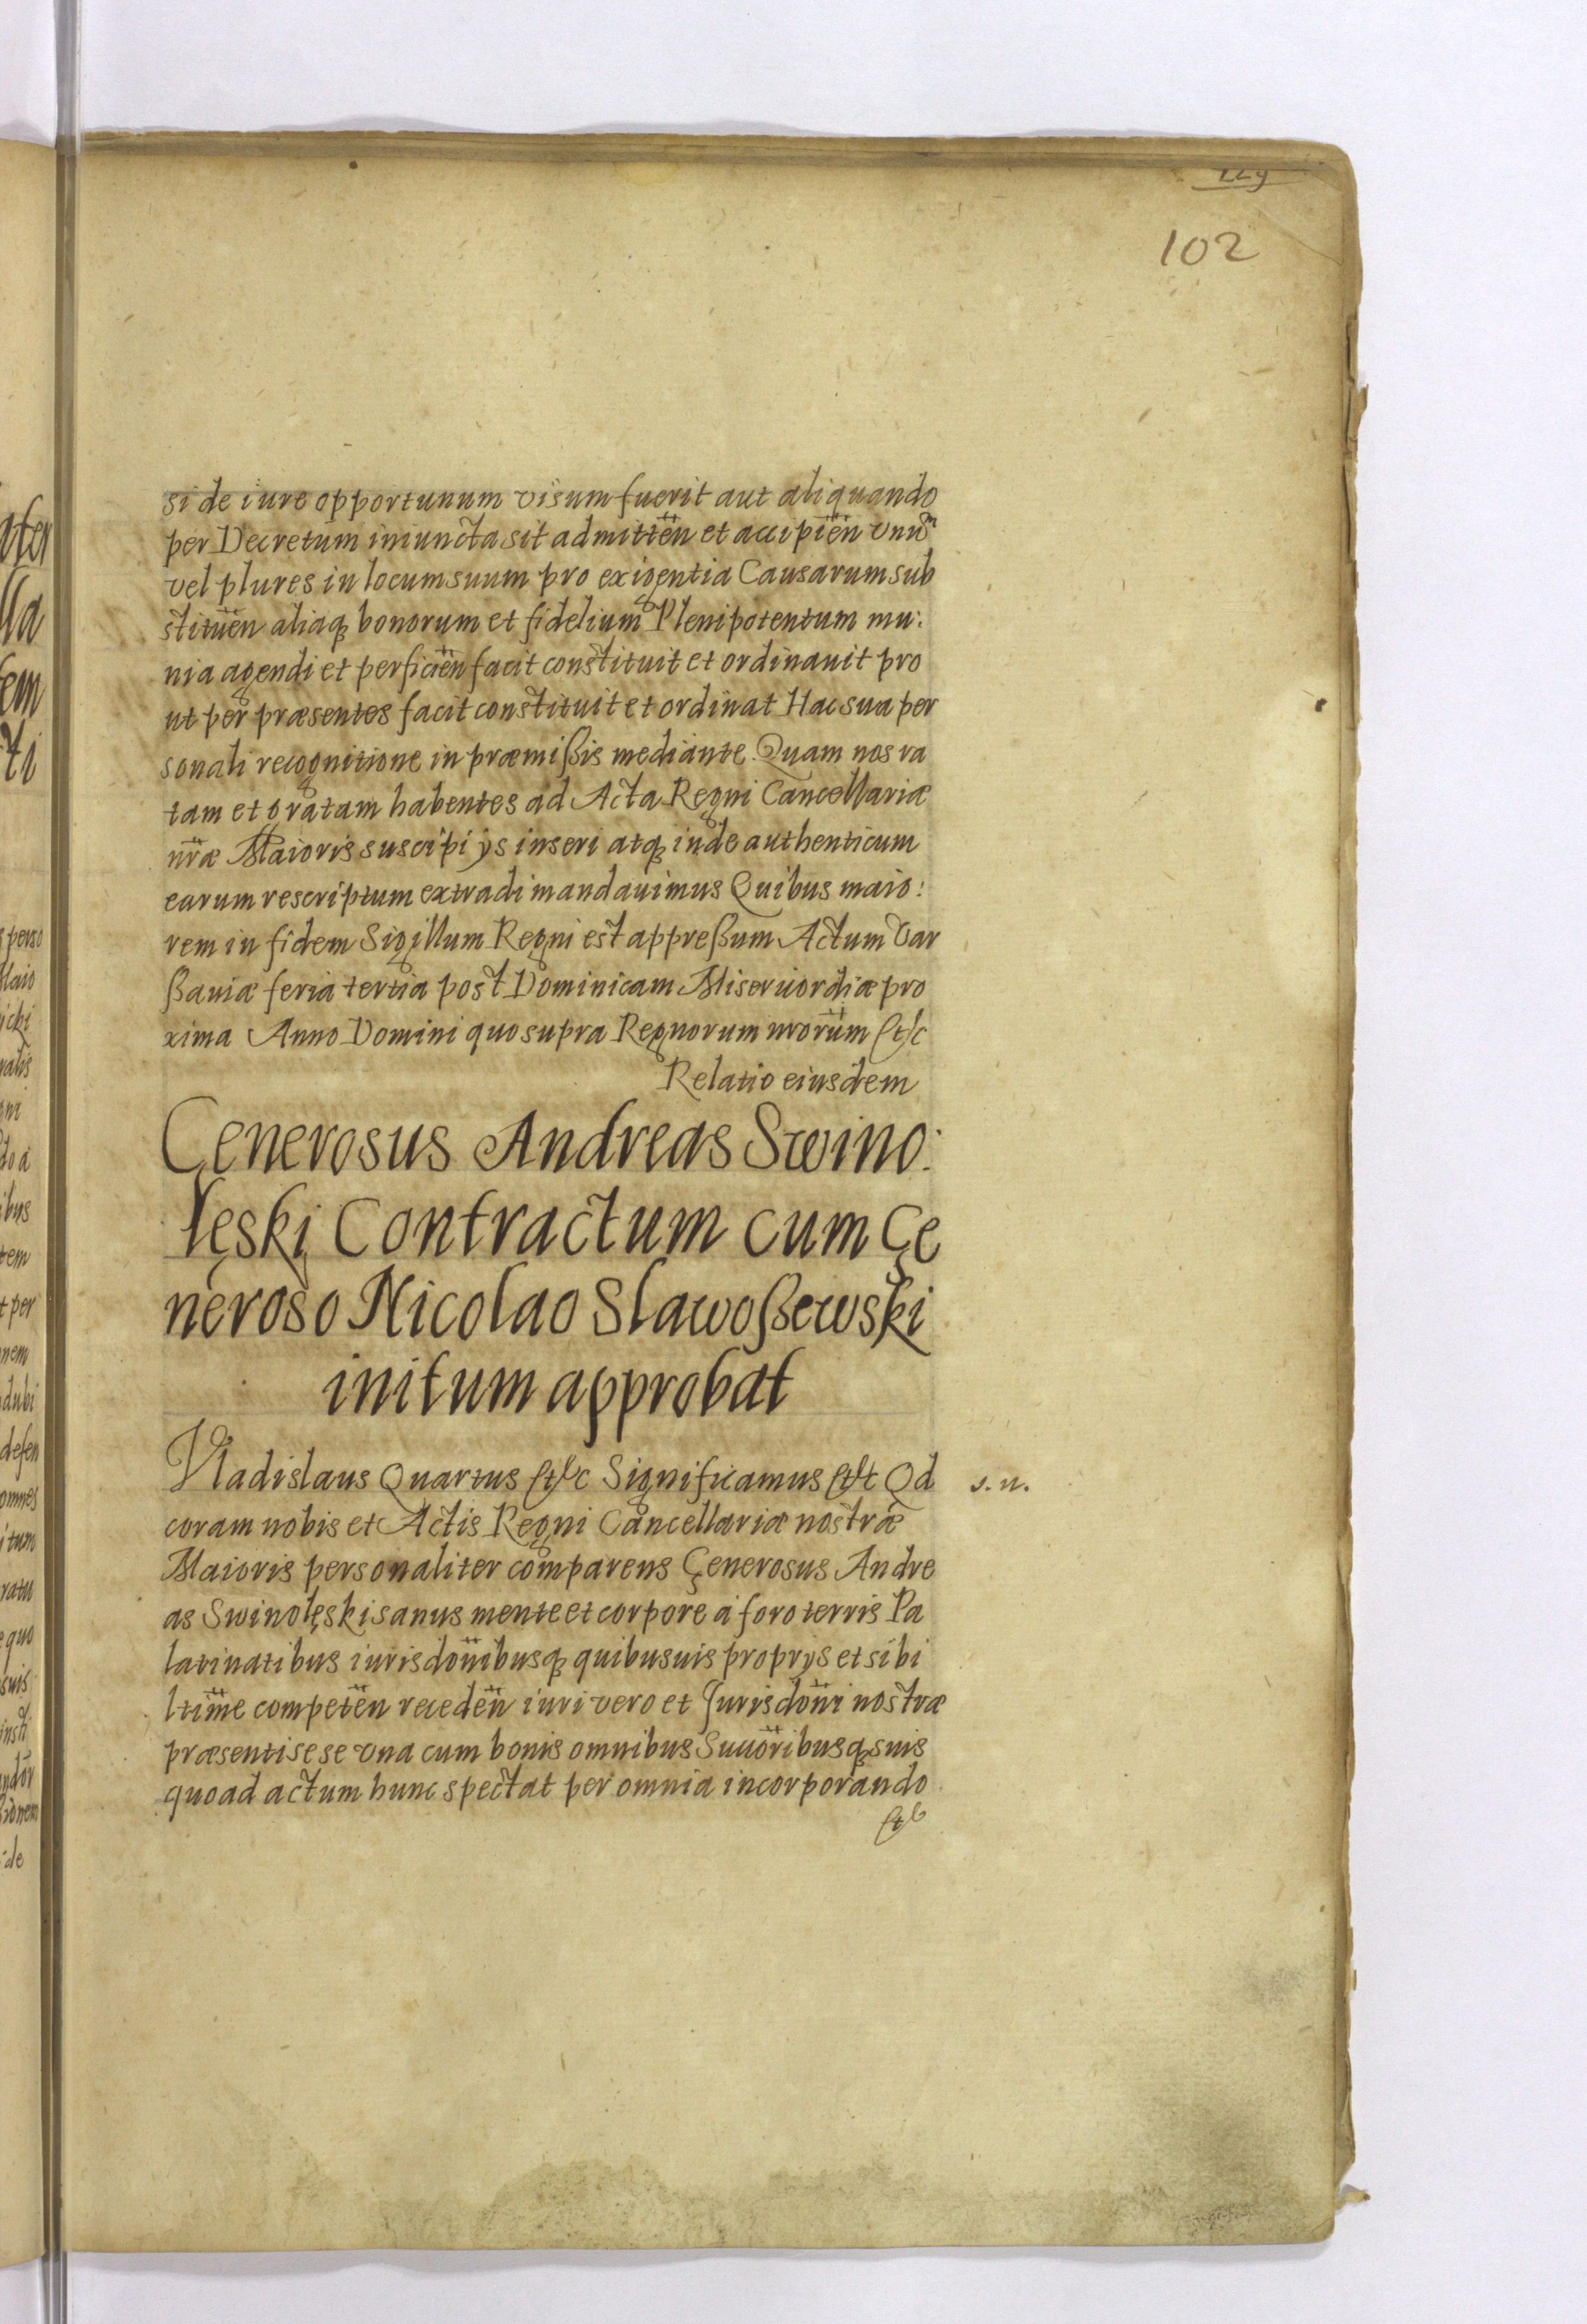 102
si de iure opportunum visum fuerit aut aliquando
per Decretum iniuncta sit admitten̈ et accipien̈ vnu᷃m
vel plures in locum suum pro exigentia Causarum sub
stituen̈ aliaq̨ bonorum et fidelium Plenipotentum mu:
nia agendi et perficien̈ facit constituit et ordinauit pro
ut per præsentes facit constituit et ordinat Hac sua per
sonali recognitione in præmißis mediante. Quam nos ra
tam et gratam habentes ad Acta Regni Cancellariæ
nr̈æ Maioris suscipi ijs inseri atq̨ inde authenticum
earum rescriptum extradi mandauimus Quibus maio:
rem in fidem Sigillum Regni est appreßum Actum Var
ßauiæ feria tertia post Dominicam Misericordiæ pro
xima Anno Domini quo supra Regnorum nror̈um &c
Relatio eiusdem
Generosus Andreas Swino:
lęski Contractum cum Ge
neroso Nicolao Slawoßewski
initum approbat
Vladislaus Quartus &c Significamus &c Qd
s. n.
coram nobis et Actis Regni Cancellariæ nostræ
Maioris personaliter comparens Generosus Andre
as Swinolęski sanus mente et corpore á foro terris Pa
latinatibus iurisdon̈ibusq̨ quibusuis proprijs et sibi
ltim̈e competen̈ receden̈ iuri vero et Jurisdon̈i nostræ
præsenti sese vna cum bonis omnibus Succor̈ibusq̨ suis
quoad actum hunc spectat per omnia incorporando
&c